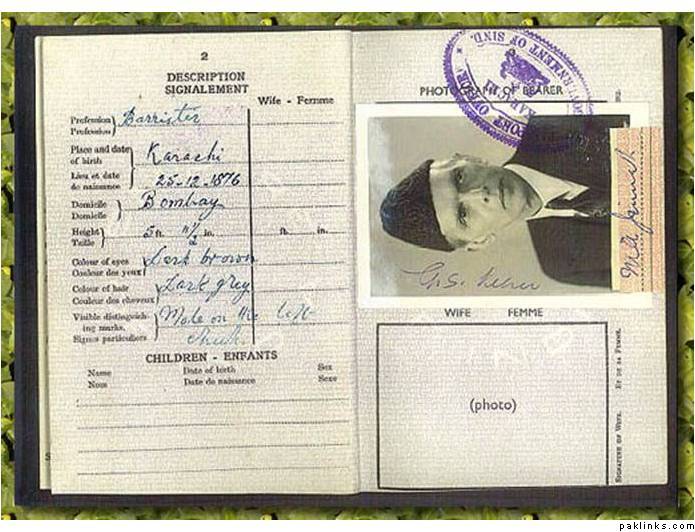 2
DESCRIPTION
SIGNALEMENT
Wife - Femme
Profession
Profession
Barrister
Place and date
of birth
Karachi
Lieu et date
de naissance
25-12-1876
Domicile
Domicile
Bombay
Height
Taille
5 ft. 11½ in.
ft. in.
Colour of eyes
Couleur des yeux
Dark brown
Colour of hair
Couleur des cheveux
Dark grey
Visible distinguish-
ing marks.
Signes particuliers
Mole on the left
cheek
CHILDREN - ENFANTS
Name
Nom
Date of birth
Date de naissance
Sex
Sexe
PHOTOGRAPH OF BEARER
PASSPORT OFFICE
KARACHI
GOVERNMENT OF SIND.
M. A. Jinnah
WIFE FEMME
(photo)
SIGNATURE OF WIFE. ET DE SA FEMME.
paklinks.com